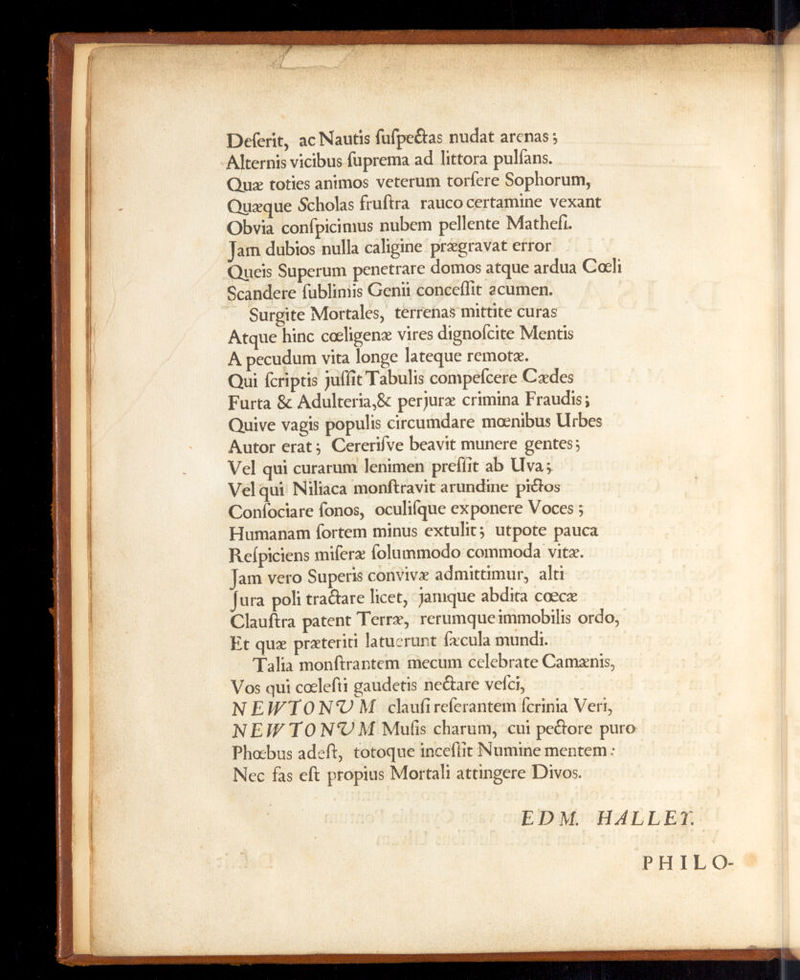 Deſerit, ac Nautis ſuſpectas nudat arenas;
Alternis vicibus ſuprema ad littora pulſans.
Quæ toties animos veterum torſere Sophorum,
Quæque Scholas fruſtra rauco certamine vexant
Obvia conſpicimus nubem pellente Matheſi.
Jam dubios nulla caligine prægravat error
Queis Superum penetrare domos atque ardua Cœli
Scandere ſublimis Genii conceſſit acumen.
Surgite Mortales, terrenas mittite curas
Atque hinc cœligenæ vires dignoſcite Mentis
A pecudum vita longe lateque remotæ.
Qui ſcriptis juſſit Tabulis compeſcere Cædes
Furta & Adulteria,& perjuræ crimina Fraudis;
Quive vagis populis circumdare mœnibus Urbes
Autor erat; Cereriſve beavit munere gentes;
Vel qui curarum lenimen preſſit ab Uva;
Vel qui Niliaca monſtravit arundine pictos
Conſociare ſonos, oculiſque exponere Voces;
Humanam ſortem minus extulit; utpote pauca
Reſpiciens miſeræ ſolummodo commoda vitæ.
Jam vero Superis convivæ admittimur, alti
Jura poli tractare licet, jamque abdita cœcæ
Clauſtra patent Terræ, rerumque immobilis ordo,
Et quæ præteriti latuerunt ſæcula mundi.
Talia monſtrantem mecum celebrate Camænis,
Vos qui cœleſti gaudetis nectare veſci,
NEWTONVM clauſi reſerantem ſcrinia Veri,
NEWTONVM Muſis charum, cui pectore puro
Phœbus adeſt, totoque inceſſit Numine mentem:
Nec fas eſt propius Mortali attingere Divos.
EDM. HALLEY.
PHILO-